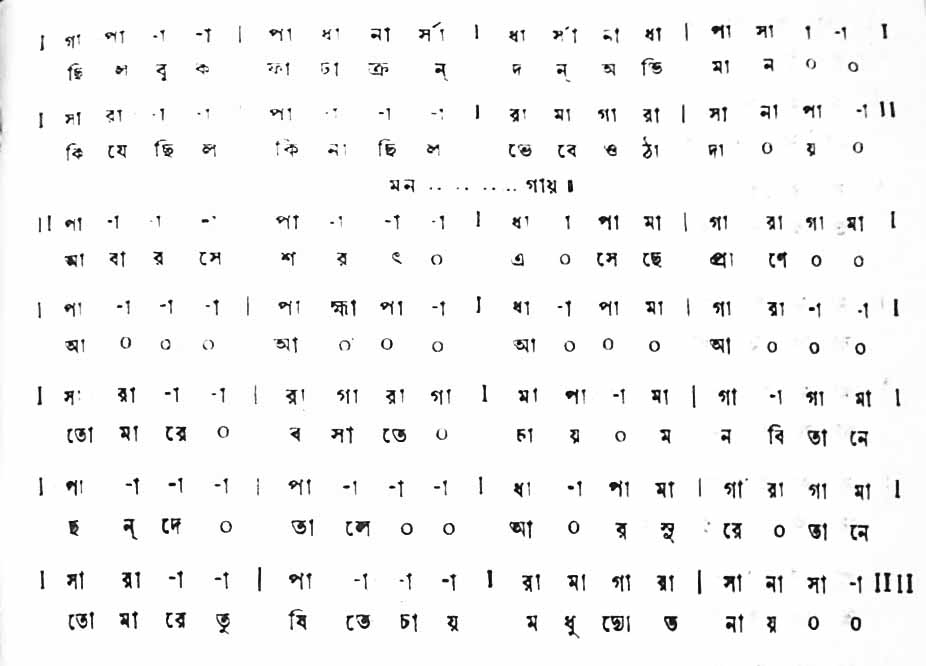 I গা পা -া -া | পা ধা না র্সা I ধা র্সা না ধা | পা সা া -া I
ছি ল বু ক ফা টা ক্র ন্ দ ন্ অ ভি মা ন ০ ০
I সা রা -া -া পা -া -া -া I রা মা গা রা | সা না পা -া II
কি যে ছি ল কি না ছি ল ভে বে ও ঠা দা ০ য় ০
মন .. .. .. ..গায়॥
II পা -া -া -া পা -া -া -া I ধা া পা মা | গা রা গা মা I
আ বা র সে শ র ৎ ০ এ ০ সে ছে প্রা ণে ০ ০
| পা -া -া -া | পা হ্মা পা -া I ধা -া পা মা | গা রা -া -া I
আ ০ ০ ০ আ ০ ০ ০ আ ০ ০ ০ আ ০ ০ ০
I সা রা -া -া | রা গা রা গা I মা পা -া মা | গা -া গা মা I
তো মা রে ০ ব সা তে ০ চা য় ০ ম ন বি তা নে
I পা -া -া -া | পা -া -া -া I ধা -া পা মা | গা রা গা মা I
ছ ন্ দে ০ তা লে ০ ০ আ ০ র সু রে ০ তা নে
I সা রা -া -া | পা -া -া -া I রা মা গা রা | সা না সা -া II II
তো মা রে তু ষি তে চা য় ম ধু দ্যো ত না য় ০ ০